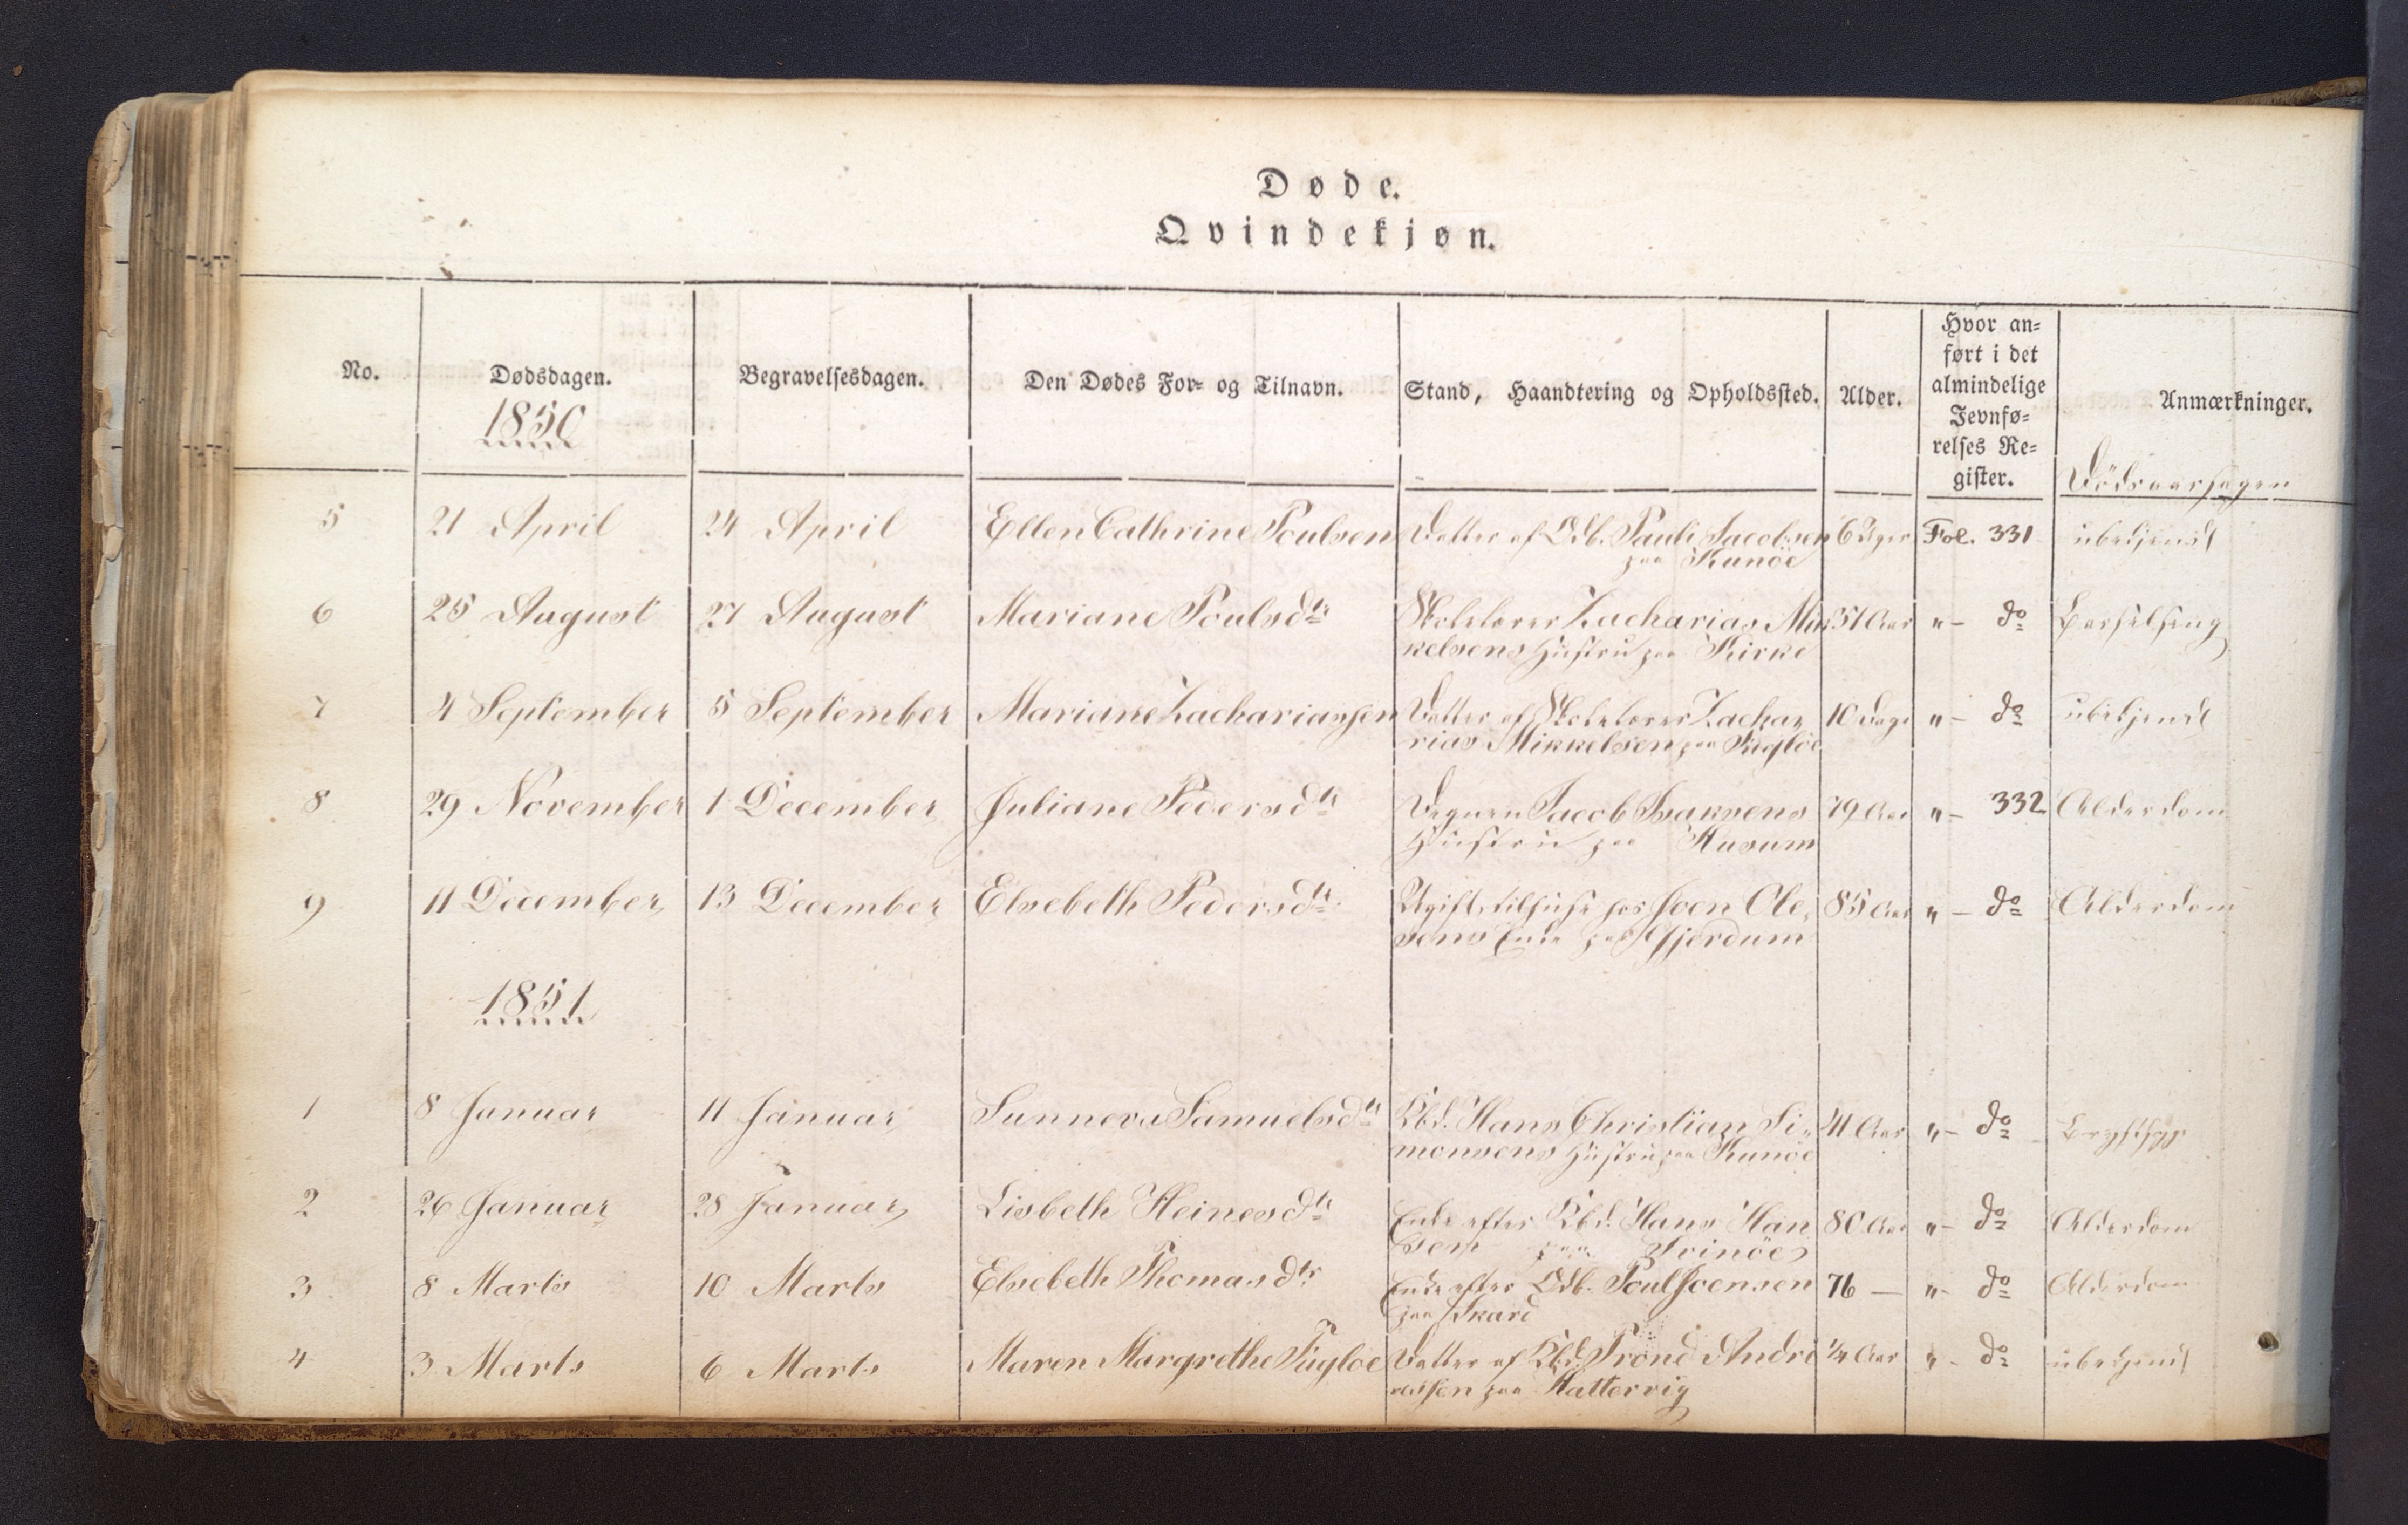 Døde.
Qvindekjøn.
No. Dødsdagen. Begravelsesdagen. Den Dødes For- og Tilnavn. Stand, Haandtering og Opholdssted. Alder. Hvor an-
ført i det
almindelige
Jevnfø-
relses Re-
gister. Anmærkninger.
1850 Dödsaarsagen
5 21 April 24 April Ellen Cathrine Poulsen Datter af Odb. Pauli Jacobsen 6 Uger Fol. 331 ubekjendt
paa Kunöe
6 25 August 27 August Mariane Poulsdtr Skolelærer Zacharias Mik 31 Aar "- do Barselseng
kelsens Hustru paa Kirke
7 4 September 5 September Mariane Zachariassen Datter af Skolelærer Zacha 10 Dage "- do ubekjendt
rias Mikkelsen paa Fugloe
8 29 November 1 December Juliane Pedersdtr Jacob Isaksens 79 Aar "- 332 Alderdom
Hustru paa Husum
9 11 December 13 December Elsebeth Pedersdtr Ugift, tilhuse hos Joen Ole, 85 Aar "- do Alderdom
sens Enke paa
1851
1 8 Januar 11 Januar Sunneva Samuelsdtr Kbd. Hans Christian Si 41 Aar "- do Brystsyge
monsens Hustru paa Kunöe
2 26 Januar 28 Januar Lisbeth Heinesdtr Enke efter Kbd. Hans Han 80 Aar "- do Alderdom
sen paa Svinöe
3 8 Marts 10 Marts Elsebeth Thomasdtr Enke efter Odb. Poul Joensen 76 — "- do Alderdom
paa Skard
4 3 Marts 6 Marts Maren Margrethe Fugloe Datter af Kbd. Trond Andre 1/4 Aar "- do ubekjendt
assen paa Hattervig